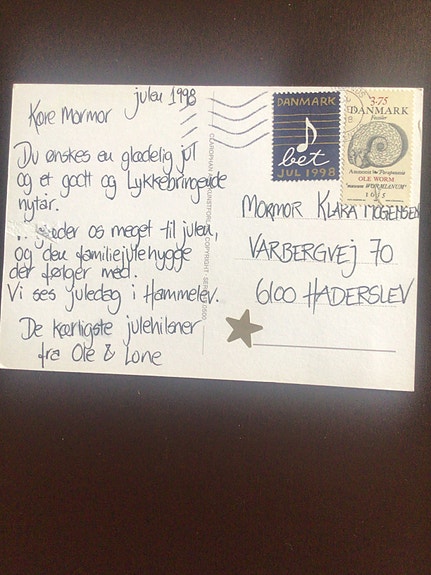 julen 1998
Kære Mormor
Du ønskes en glædelig jul
og et godt og Lykkebringende
nytår.
glæder os meget til julen,
og den familiejulehygge
der følger med.
Vi ses juledag i Hammelev.
De kærligste julehilsner
fra Ole & Lone
DANMARK
bet
JUL 1998
3.75
DANMARK
Fossiler
Ammonit
OLE WORM
"museum WORMIANUM"
1655
MORMOR KLARA MOGENSEN
VARBERGVEJ 70
6100 HADERSLEV